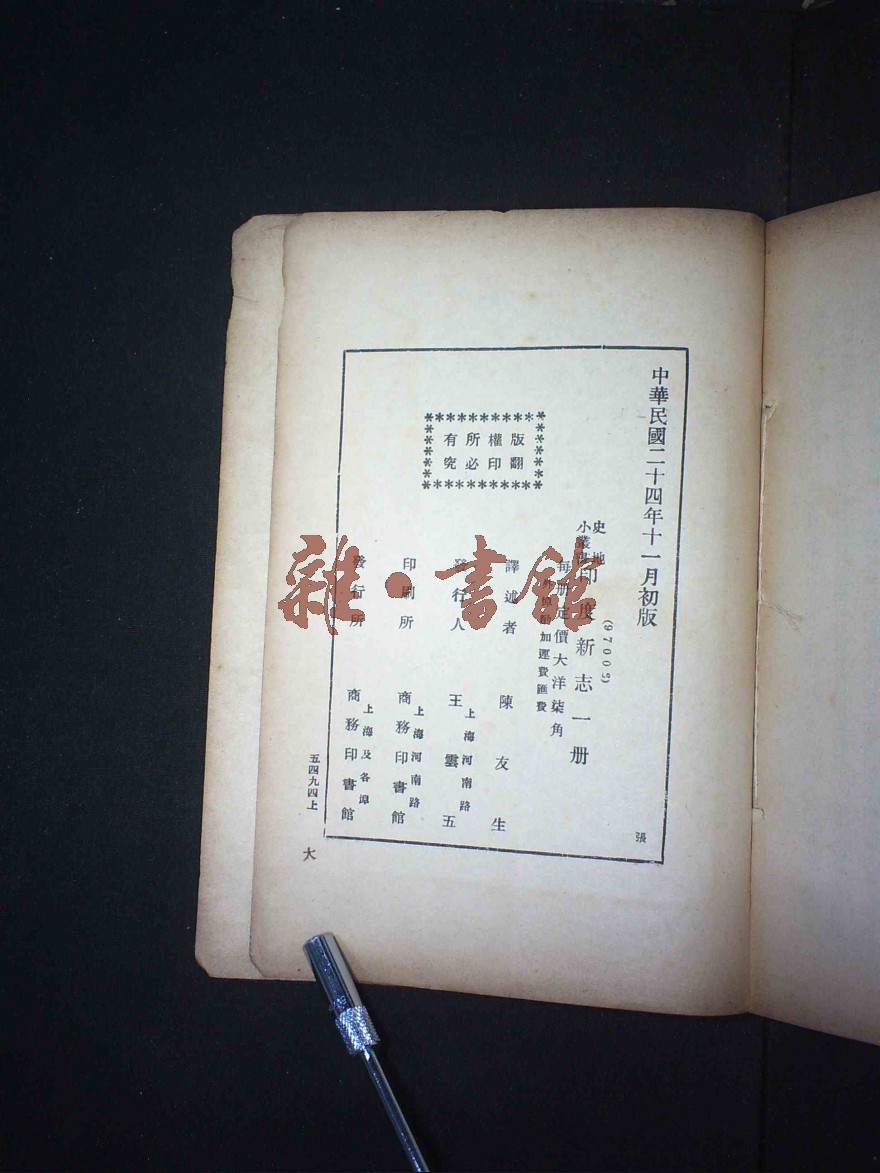 中華民國二十四年十一月初版
(97009)
史地小叢書 印度新志一册
每册定價大洋柒角
外埠酌加運費匯費
譯述者 陳友生
發行人 王雲五
上海河南路
印刷所 商務印書館
上海河南路
發行所 商務印書館
上海及各埠
版權所有
翻印必究
張
五四九四上
大
雜·書館